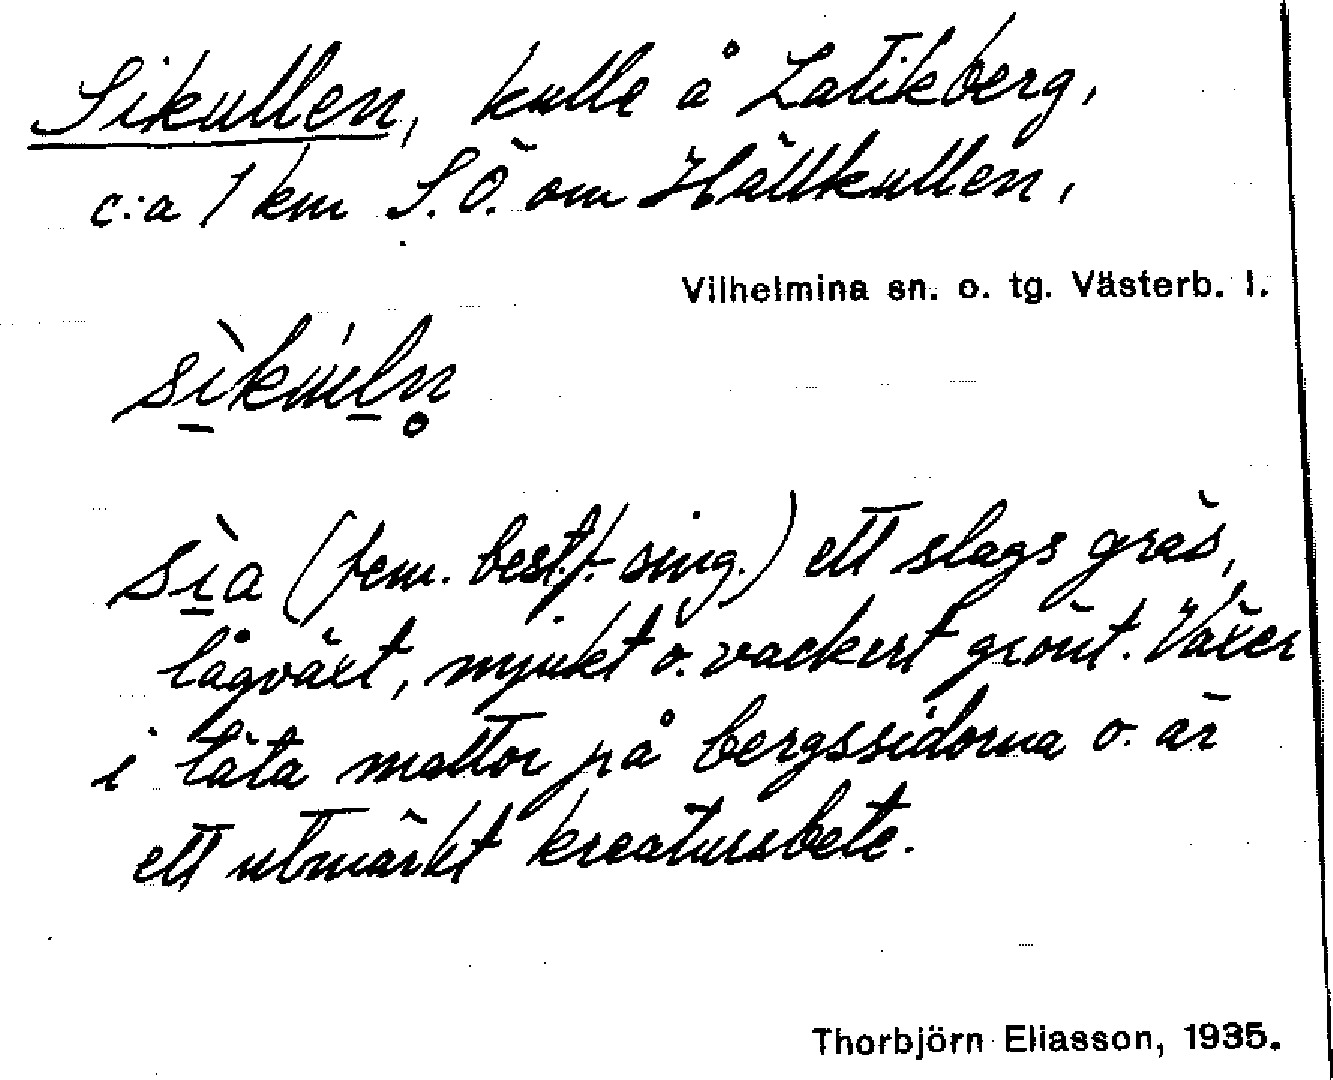 Sikullen, kulle å Latikberg,
c:a 1 km S.Ö. om Hällkullen,
Vilhelmina sn. o. tg. Västerb. l.
sìa (fem. best.f. sing.) ett slags gräs,
lågväxt, mjukt o. vackert grönt. Växer
i täta mattor på bergssidorna o. är
ett utmärkt kreatursbete.
Thorbjörn Eliasson, 1935.